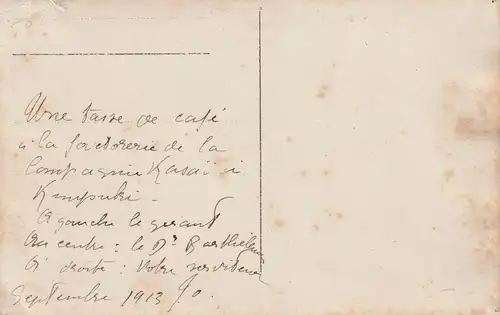 Une tasse de café
à la factorerie de la
Compagnie Kasaï à
Kimpuki -
A gauche le gérant
Au centre : le Dr Barthélemy
A droite : Votre serviteur
Septembre 1913